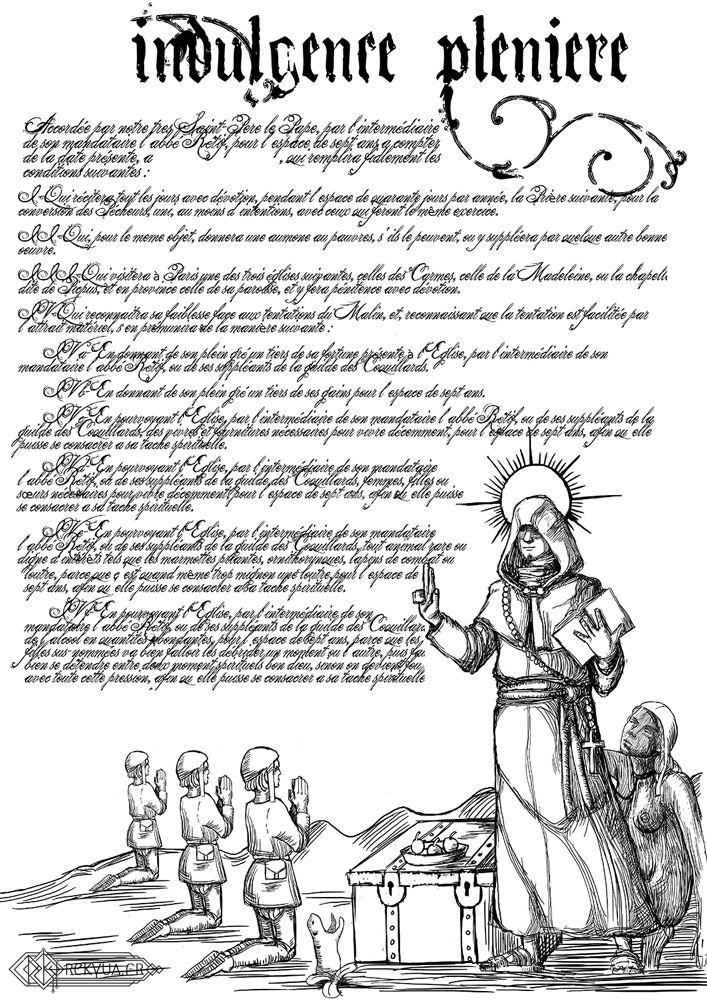 indulgence pleniere
Accordée par notre tres Saint-Pere le Pape, par l'intermédiaire
de son mandataire l'abbé Rétif, pour l'espace de sept ans a compter
de la date présente, a , qui remplira fidlement les
conditions suivantes :
I-Qui récitera tout les jours avec dévotion, pendant l'espace de quarante jours par année, la Prière suivante, pour la
conversion des Pécheurs, uni, au moins d'intentions, avec ceux qui feront le même exercice.
II-Qui, pour le meme objet, donnera une aumone au pauvres, s'ils le peuvent, ou y suppléera par quelque autre bonne
oeuvre.
III-Qui visitera à Paris une des trois églises suivantes, celles des Carmes, celle de la Madeleine, ou la chapelle
dite de Picpus, et en province celle de sa paroisse, et y fera pénitence avec dévotion.
IV-Qui reconnaitra sa faiblesse face aux tentations du Malin, et, reconnaissant que la tentation est facilitée par
l'attrait matériel, s'en prémunira de la manière suivante :
IVa-En donnant de son plein gré un tiers de sa fortune présente à l'Eglise, par l'intermédiaire de son
mandataire l'abbé Rétif, ou de ses suppléants de la guilde des Couillards.
IVb-En donnant de son plein gré un tiers de ses gains pour l'espace de sept ans.
IVc-En pourvoyant l'Eglise, par l'intermédiaire de son mandataire l'abbé Rétif, ou de ses suppléants de la
guilde des Couillards, des vivres et fournitures nécessaires pour vivre décemment, pour l'espace de sept ans, afin qu'elle
puisse se consacrer a sa tache spirituelle.
IVd-En pourvoyant l'Eglise, par l'intermédiaire de son mandataire
l'abbé Rétif, ou de ses suppléants de la guilde des Couillards, femmes, filles ou
sœurs nécessaires pour vivre décemment pour l'espace de sept ans, afin qu'elle puisse
se consacrer a sa tache spirituelle.
IVe-En pourvoyant l'Eglise, par l'intermédiaire de son mandataire
l'abbé Rétif, ou de ses suppléants de la guilde des Couillards, tout animal rare ou
digne d'interets tels que les marmottes pilantes, ornithorynques, lapins de combat ou
loutre, parce que c'est quand même trop mignon une loutre, pour l'espace de
sept ans, afin qu'elle puisse se consacrer a sa tache spirituelle.
IVf-En pourvoyant l'Eglise, par l'intermédiaire de son
mandataire l'abbé Rétif, ou de ses suppléants de la guilde des Couillards,
de l'alcool en quantités abondantes, pour l'espace de sept ans, parce que les
filles sus-nommées va bien falloir les débrider un moment ou l'autre, puis faut
bien se détendre entre deux moment spirituels bon dieu, sinon on devient fou
avec toute cette pression, afin qu'elle puisse se consacrer a sa tache spirituelle
REKVUA.FR